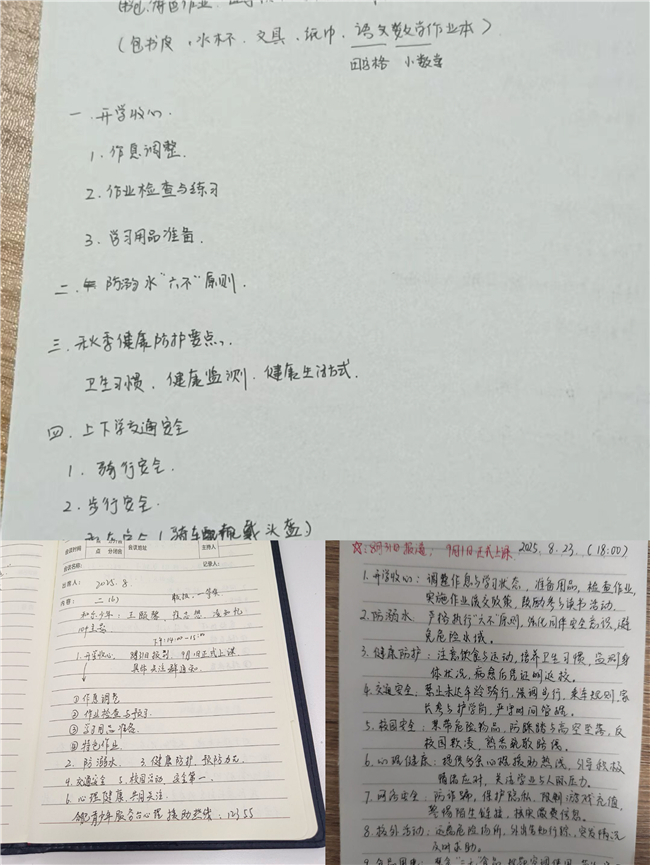 (包书皮、水杯、文具、纸巾、语文数学作业本)
田字格 小数本
一.开学收心.
1.作息调整.
2.作业检查与练习
3.学习用品准备.
二. 防溺水“六不”原则.
三.秋季健康防护要点、
卫生习惯、健康监测、健康生活方式.
四.上下学交通安全
1.骑行安全.
2.步行安全.
会议时间
点 分闭会
会议地址
主持人
会议名称:
记录人:
出席人: 2025.8
内容: 二(6)
下午14:00-15:00
1.开学收心. 8月31日报到, 9月1日正式上课
具体关注群通知
①作息调节
②作业检查与预习
③学习用品准备
④特色作业
2. 防溺水. 3.健康防护, 预防为先
4.交通安全 5.校园活动, 安全第一.
6.心理健康, 共同关注.
青少年服务台心理援助热线: 12355
☆:8月31日报道; 9月1日正式上课 2025.8.23.(18:00)
1.开学收心: 调整作息与学习状态, 准备用品, 检查作业,
实施作业提交政策, 鼓励参与读书活动.
2.防溺水. 严格执行“六不”原则, 强化同伴安全意识, 避
免危险水域.
3.健康防护: 注意饮食与运动, 培养卫生习惯, 监测身
体状况, 病愈后凭证明返校.
4.交通安全: 禁止未达年龄骑行, 强调步行、乘车规则, 家
长参与护学岗, 严守时间管理.
5.校园安全: 禁带危险物品, 防踩踏与高空坠落, 反
校园欺凌, 熟悉疏散路线.
6.心理健康: 提供多条心理援助热线, 引导积极
情绪应对, 关注学业与人际压力.
7.网络安全: 防诈骗, 保护隐私, 限制游戏充值,
警惕陌生链接, 核实缴费信息.
8.校外活动: 远离危险场所, 外出告知行踪, 突发情况
及时求助.